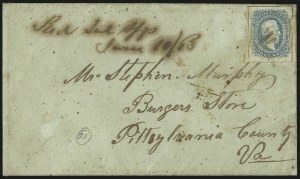 Red Sul Spr
June 10/63
Mr Stephen Murphy
Burgers Store
Pittsylvania County
Va
21